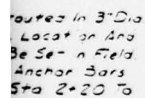 routed In 3" Dia
Locat or And
Be Se- n Field.
Anchor Bars
Sta 2+20 To